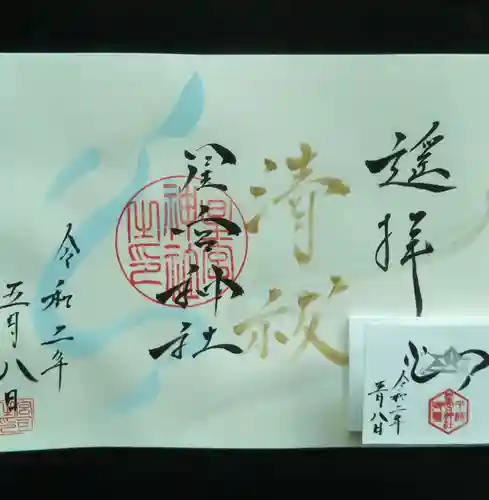 遙拝
清祓
星宮神社
星宮神社之印
令和二年
五月八日
令和二年
五月八日